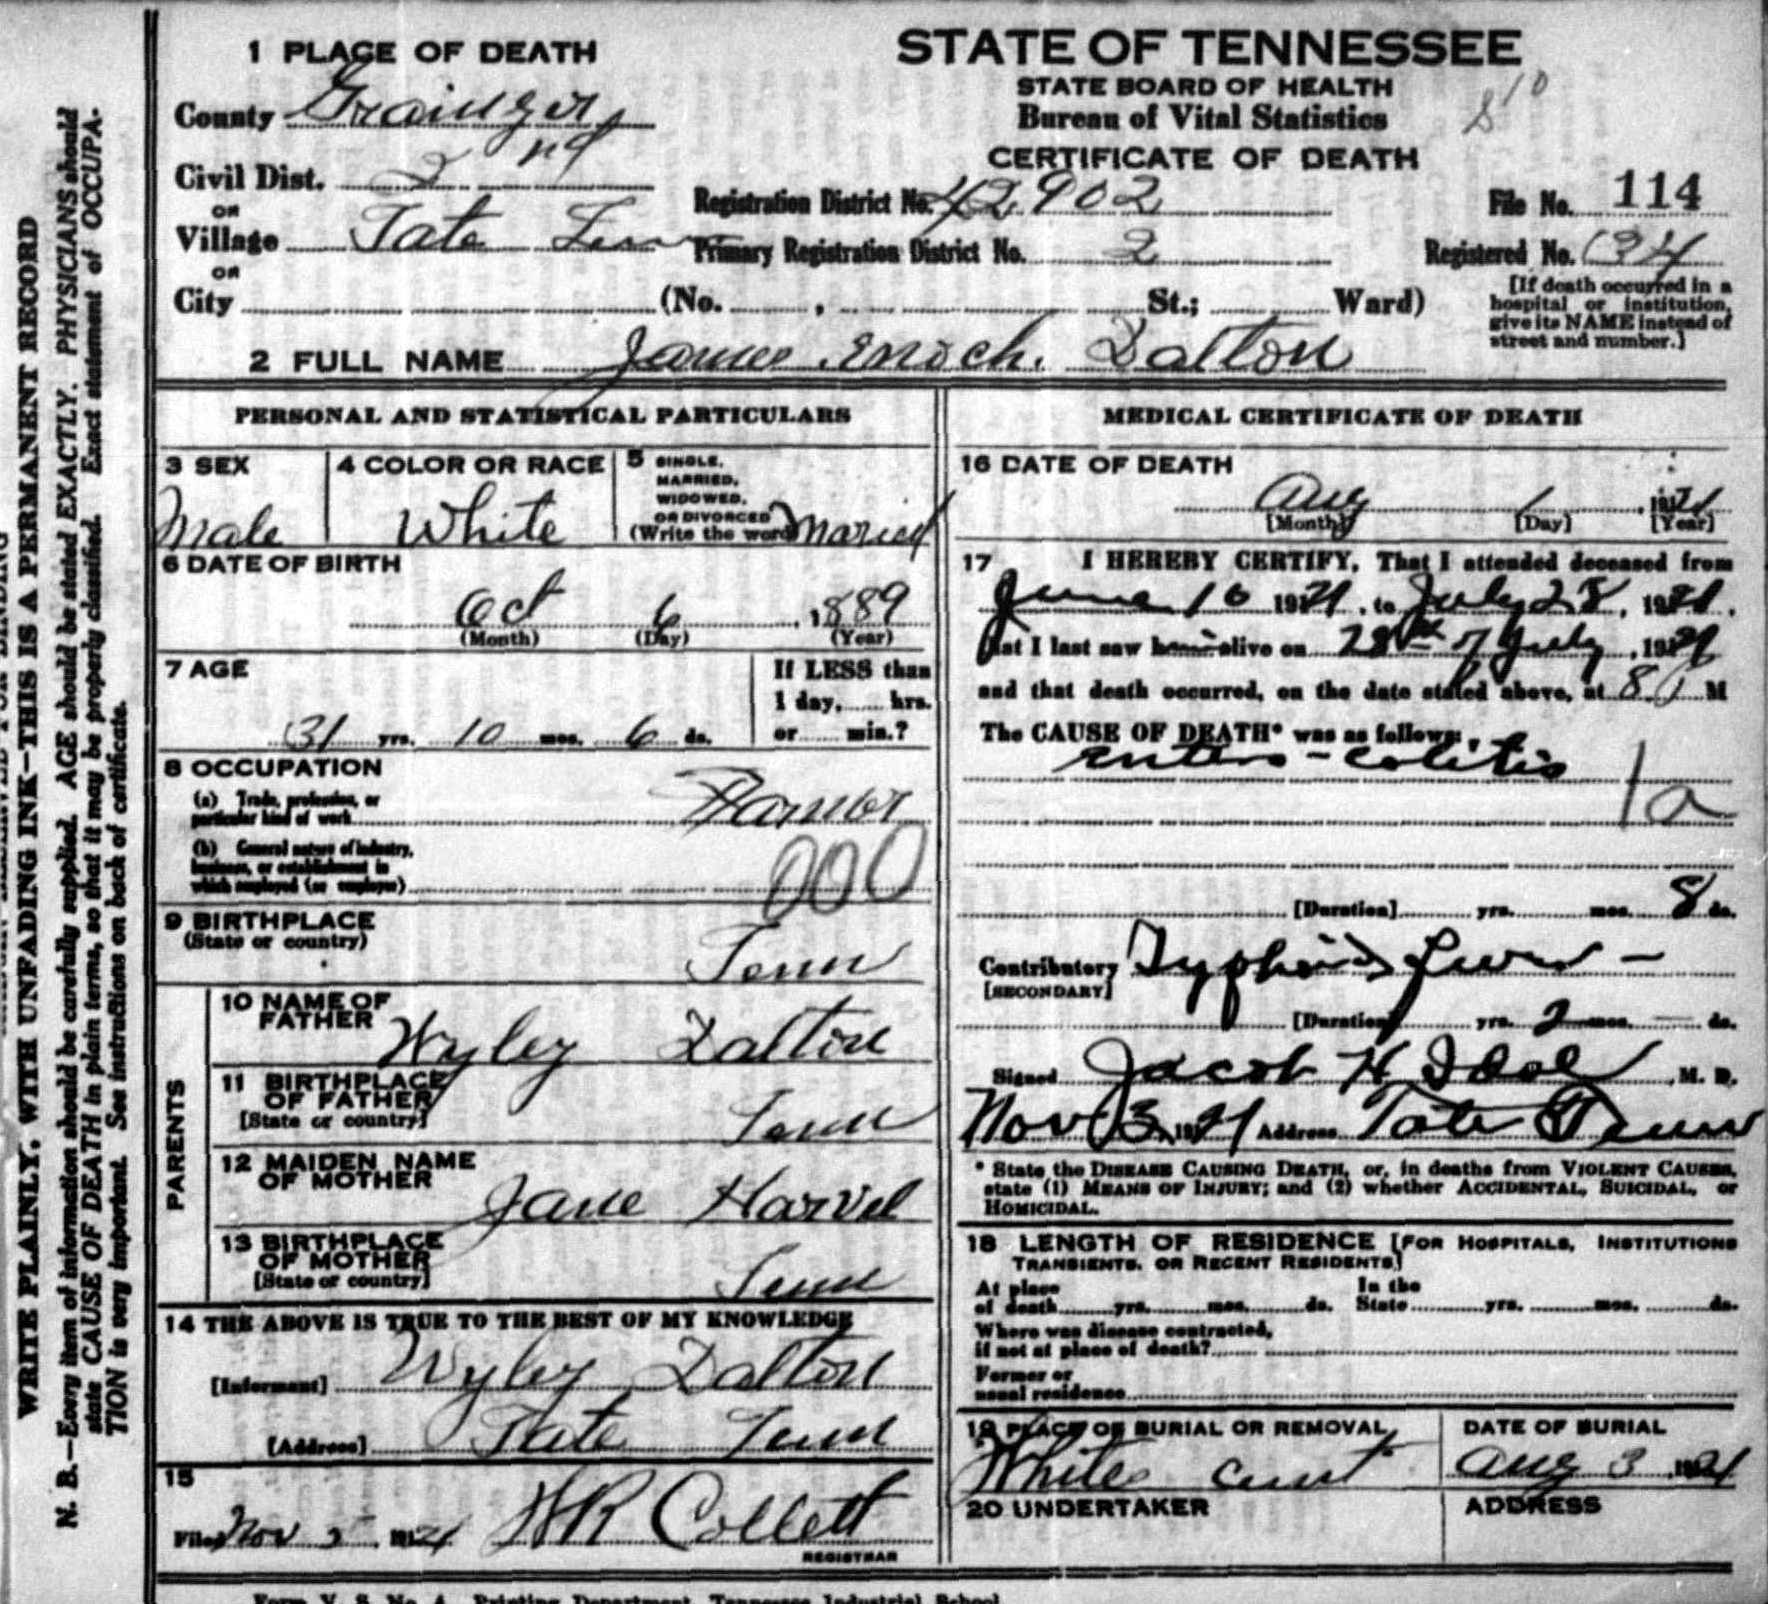 1 PLACE OF DEATH
County Grainger
Civil Dist. 2 nd
OR
Village Tate Tenn
OR
City (No. , St.; Ward)
STATE OF TENNESSEE
STATE BOARD OF HEALTH
Bureau of Vital Statistics
CERTIFICATE OF DEATH
Registration District No. 42902
Primary Registration District No. 2
File No. 114
Registered No. 34
[If death occurred in a
hospital or institution,
give its NAME instead of
street and number.]
2 FULL NAME James Enoch. Dalton
PERSONAL AND STATISTICAL PARTICULARS
3 SEX
Male
4 COLOR OR RACE
White
5 SINGLE,
MARRIED,
WIDOWED,
OR DIVORCED
(Write the word) Maried
6 DATE OF BIRTH
Oct 6, 1889
(Month) (Day) (Year)
7 AGE
31 yrs. 10 mos. 6 ds.
If LESS than
1 day, hrs.
or min.?
8 OCCUPATION
(a) Trade, profession, or
particular kind of work Farmer
(b) General nature of industry,
business, or establishment in
which employed (or employer)
000
9 BIRTHPLACE
(State or country) Tenn
PARENTS
10 NAME OF
FATHER Wyley Dalton
11 BIRTHPLACE
OF FATHER
[State or country] Tenn
12 MAIDEN NAME
OF MOTHER Jane Harvel
13 BIRTHPLACE
OF MOTHER
[State or country] Tenn
14 THE ABOVE IS TRUE TO THE BEST OF MY KNOWLEDGE
[Informant] Wyley Dalton
[Address] Tate Tenn
15
Filed Nov 5, 1921 WR Collett
REGISTRAR
MEDICAL CERTIFICATE OF DEATH
16 DATE OF DEATH
Aug 1, 1921
[Month] [Day] [Year]
17 I HEREBY CERTIFY, That I attended deceased from
June 10 1921, to July 28, 1921,
that I last saw him alive on 28th of July, 1921
and that death occurred, on the date stated above, at 8 P M
The CAUSE OF DEATH* was as follows:
entero-colitis
1a
[Duration] yrs. mos. 8 ds.
Contributory Typhoid fever -
[SECONDARY]
[Duration] yrs. 2 mos. - ds.
Signed Jacob H Idol, M. D.
Nov 3, 1921 Address Tate Tenn
* State the DISEASE CAUSING DEATH, or, in deaths from VIOLENT CAUSES,
state (1) MEANS OF INJURY; and (2) whether ACCIDENTAL, SUICIDAL, or
HOMICIDAL.
18 LENGTH OF RESIDENCE [FOR HOSPITALS, INSTITUTIONS
TRANSIENTS, OR RECENT RESIDENTS]
At place
of death yrs. mos. ds.
In the
State yrs. mos. ds.
Where was disease contracted,
if not at place of death?
Former or
usual residence
19 PLACE OF BURIAL OR REMOVAL
White
DATE OF BURIAL
Aug 3 1921
20 UNDERTAKER
ADDRESS
WRITE PLAINLY, WITH UNFADING INK—THIS IS A PERMANENT RECORD
N. B.—Every item of information should be carefully supplied. AGE should be stated EXACTLY. PHYSICIANS should
state CAUSE OF DEATH in plain terms, so that it may be properly classified. Exact statement of OCCUPA-
TION is very important. See instructions on back of certificate.
Form V. S. No. 4 Printing Department, Tennessee Industrial School